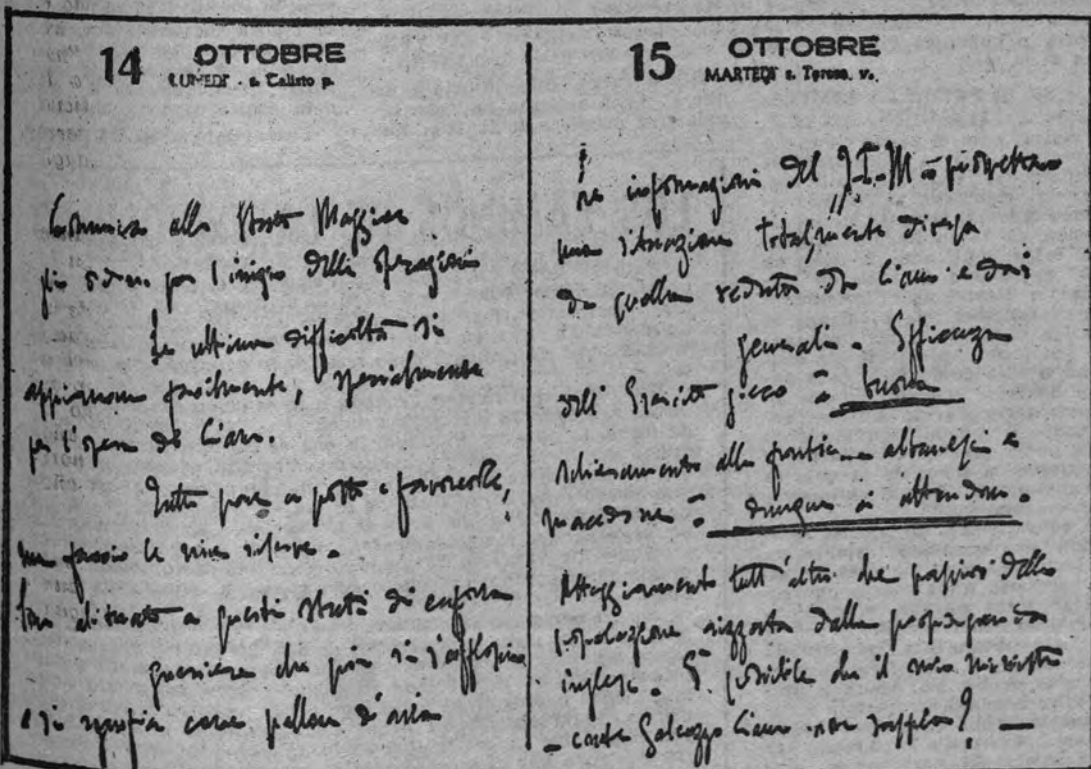 14 OTTOBRE
LUNEDI - s. Calisto p.
Comunico allo Stato Maggiore
gli ordini per l'inizio delle operazioni
Le ultime difficoltà si
appianano facilmente, specialmente
per l'opera di Ciano.
Tutto pare a posto e favorevole,
ma faccio le mie riserve.
Sono abituato a questi stati di euforia
guerriera che poi si
e si sgonfia come pallone d'aria
15 OTTOBRE
MARTEDI s. Teresa. v.
Le informazioni del S.I.M prospettano
una situazione totalmente diversa
da quella veduta da Ciano e dai
generali. Efficienza
dell'Esercito greco è buona
schieramento alla frontiera albanese e
macedone è dunque ci attendono.
Atteggiamento tutt'altro che passivo della
popolazione aizzata dalla propaganda
inglese. È possibile che il mio ministro
- conte Galeazzo Ciano non sappia? -